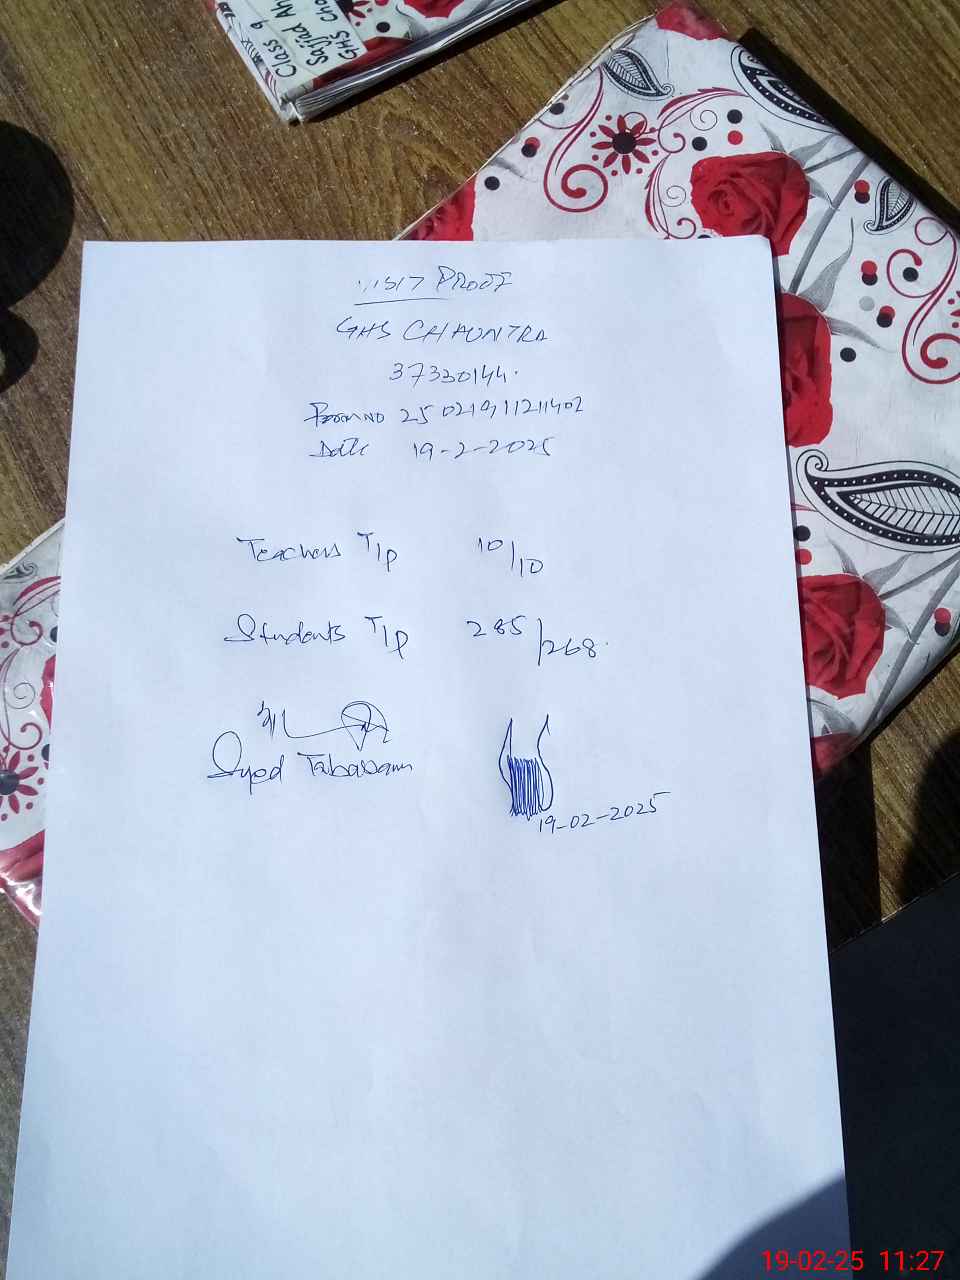 Class 9
Sajjad Ah
GHS Cha
VISIT PROOF
GHS CHAUNTRA
37330144.
25 0219, 11211402
Date 19-2-2025
Teachers T/P 10/10
Students T/P 285/268.
Syed Tabassam
19-02-2025
19-02-25 11:27